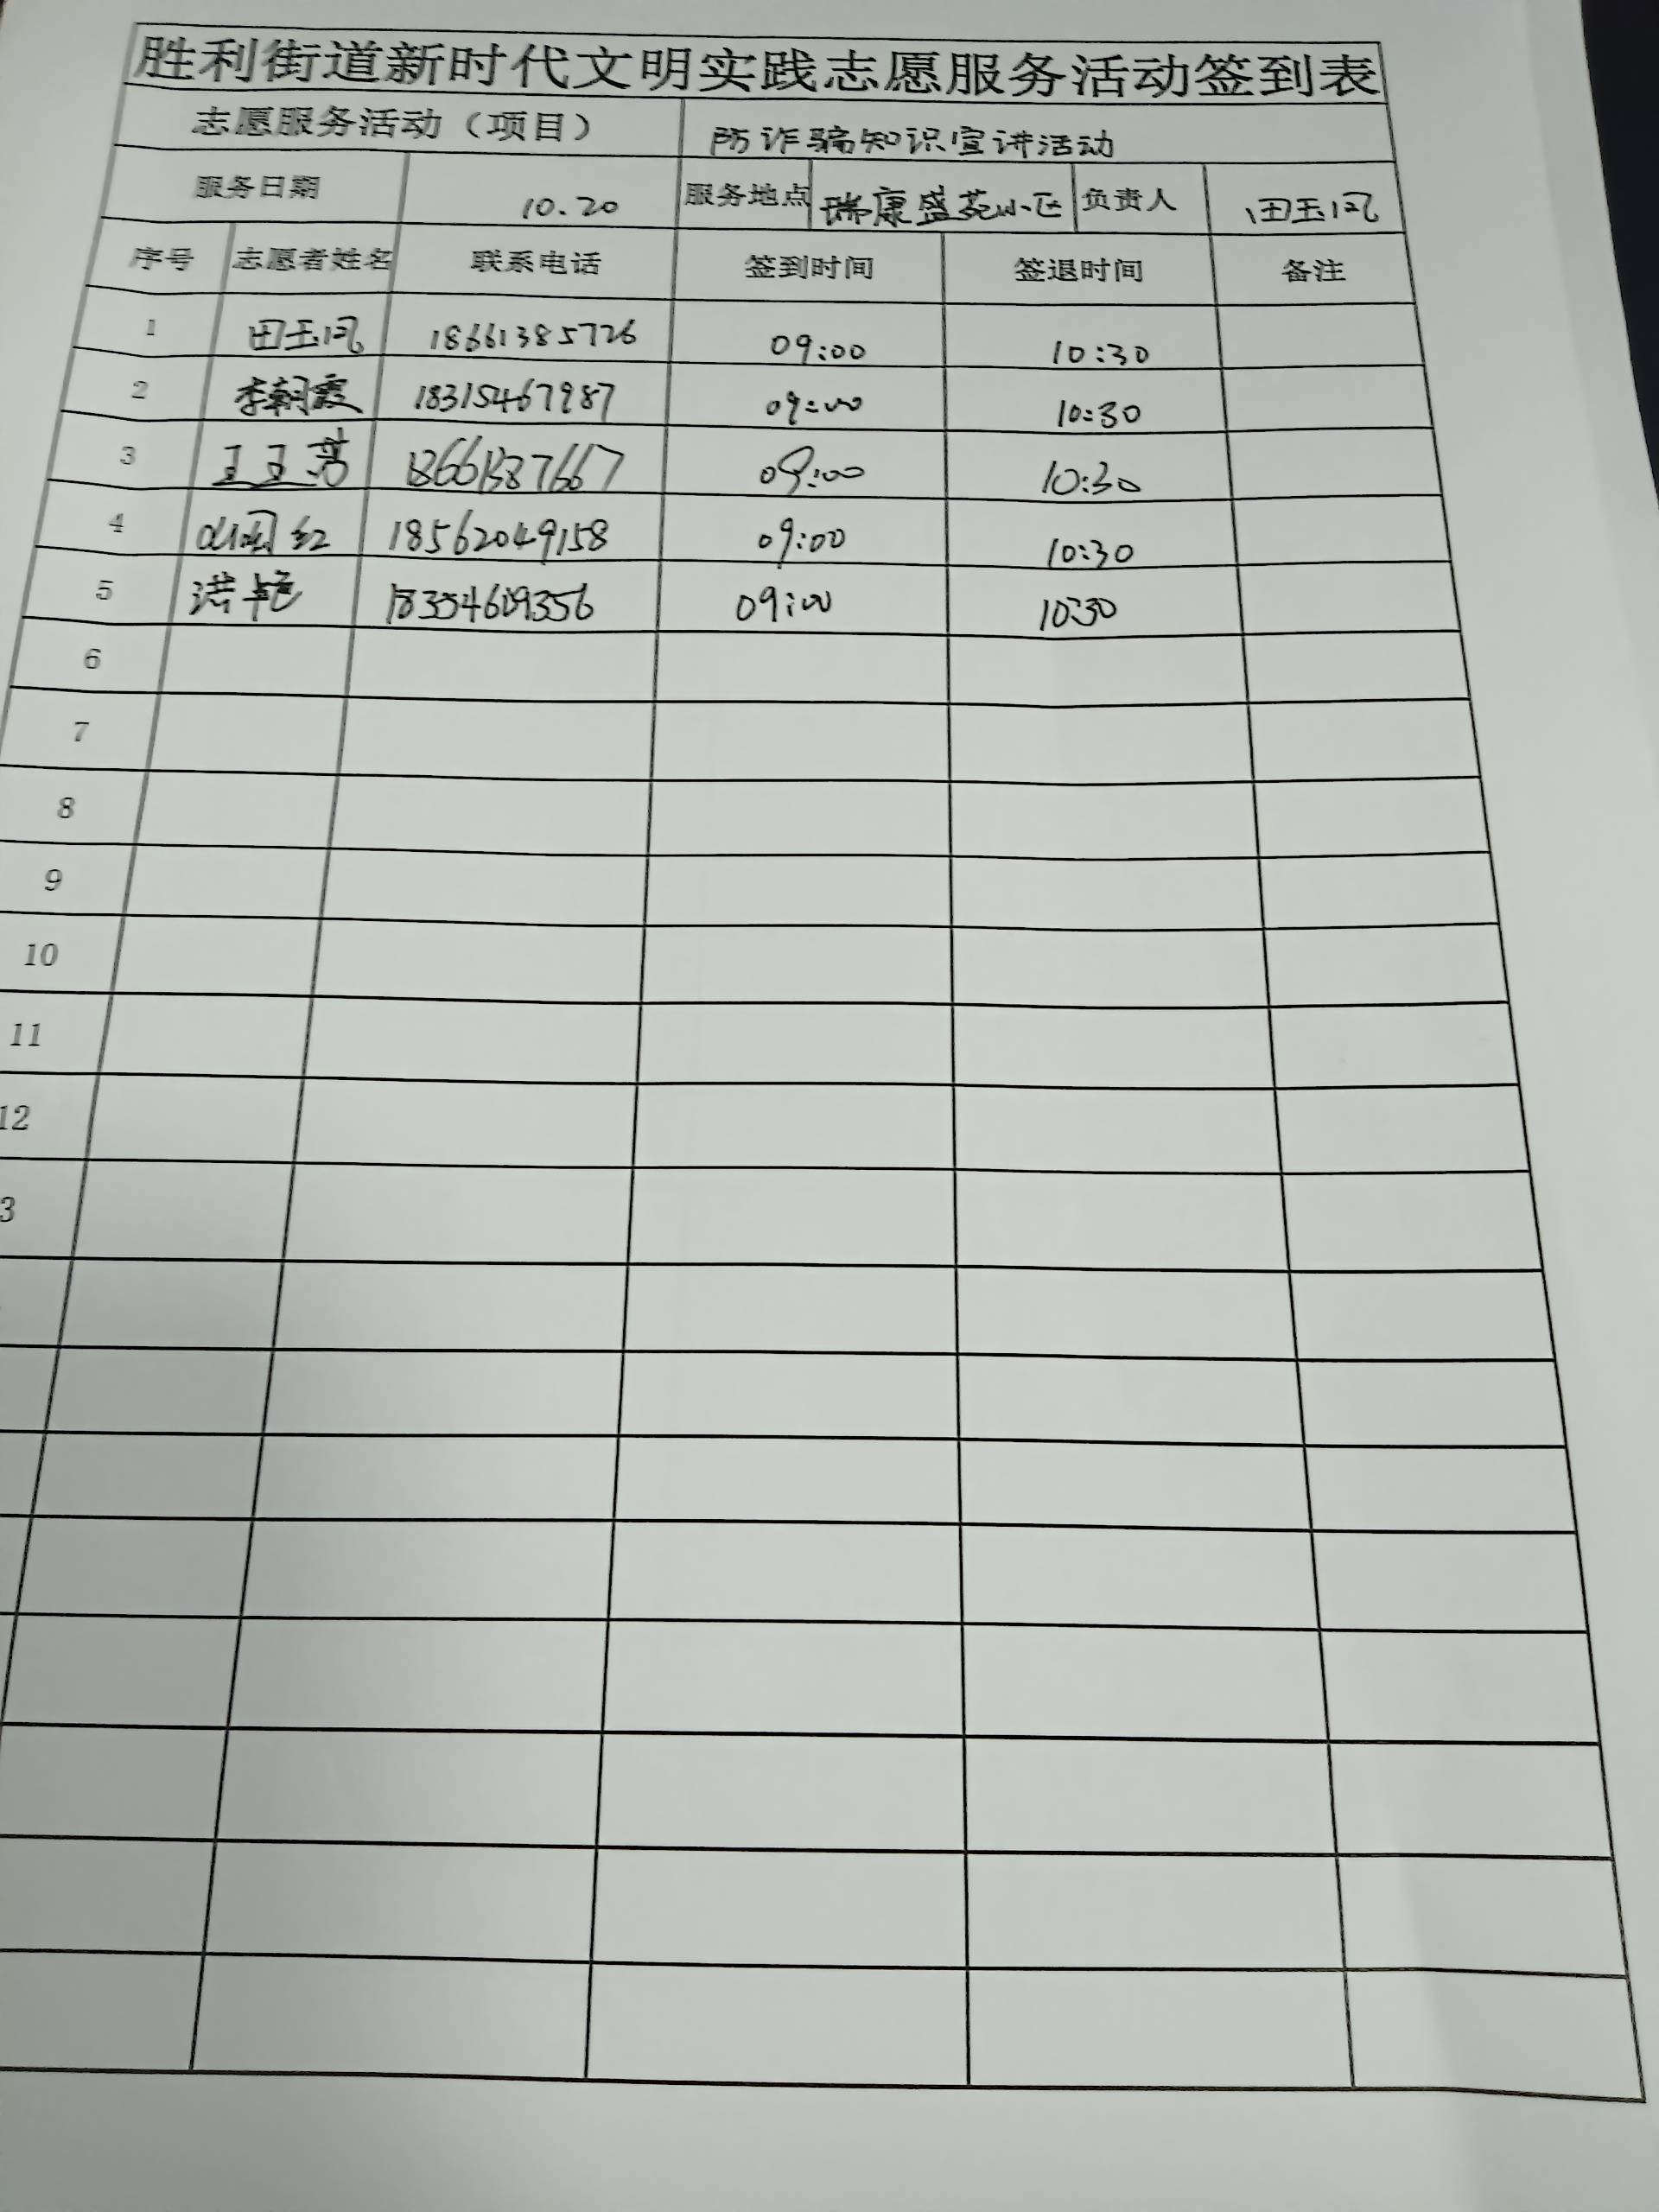 胜利街道新时代文明实践志愿服务活动签到表
志愿服务活动（项目） 防诈骗知识宣讲活动
服务日期 10.20 服务地点 瑞康盛苑小区 负责人 田玉凤
序号 志愿者姓名 联系电话 签到时间 签退时间 备注
1 田玉凤 18661385726 09:00 10:30
2 李朝霞 18315467987 09:00 10:30
3 09:00 10:30
4 18562049158 09:00 10:30
5 18354609356 09:00 10:30
6
7
8
9
10
11
12
3